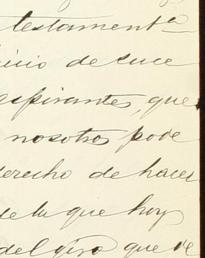 testamentª
icio de suce
espirantes, que
nosotros pode
derecho de hacer
de la que hoy
del giro que se